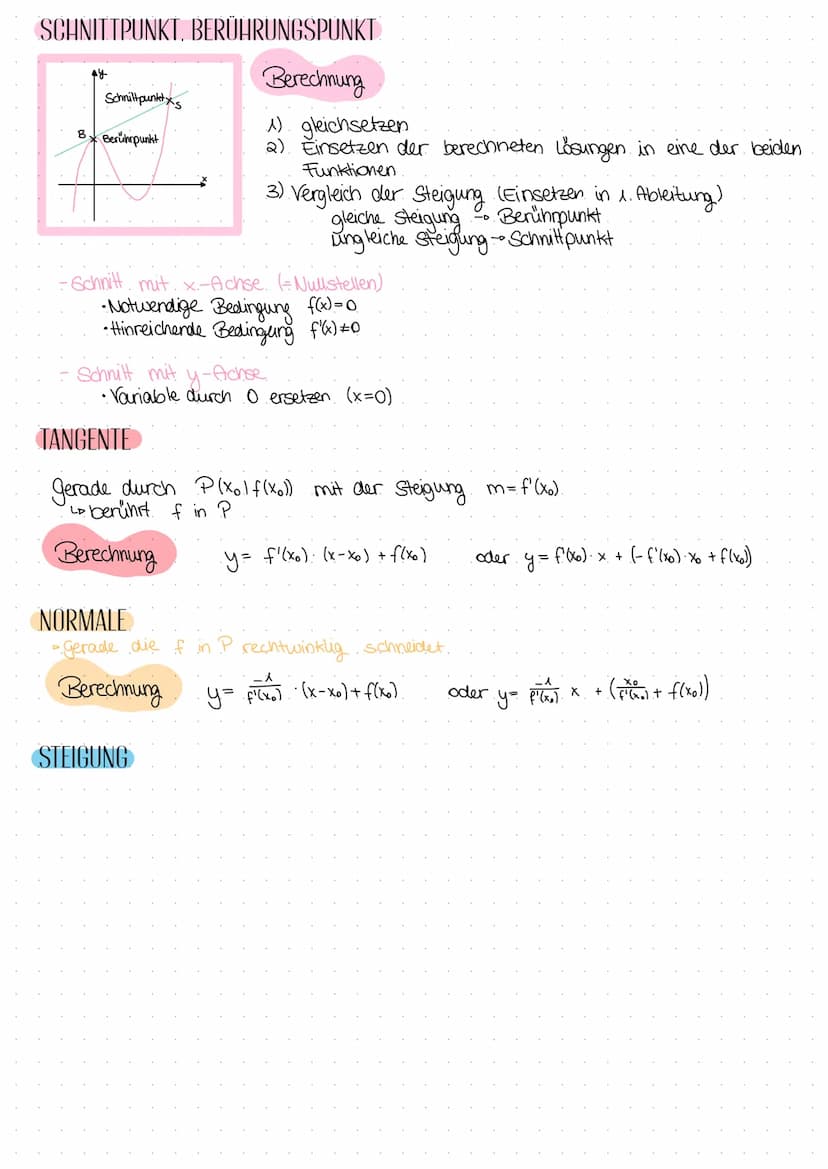 SCHNITTPUNKT, BERÜHRUNGSPUNKT
y
Schnittpunkt x S
B x Berührpunkt
x
Berechnung
1) gleichsetzen
2) Einsetzen der berechneten Lösungen in eine der beiden
Funktionen
3) Vergleich der Steigung (Einsetzen in 1. Ableitung)
gleiche Steigung → Berührpunkt
ungleiche Steigung → Schnittpunkt
- Schnitt mit x-Achse (=Nullstellen)
• Notwendige Bedingung f(x)=0
• Hinreichende Bedingung f'(x)≠0
- Schnitt mit y-Achse
• Variable durch 0 ersetzen (x=0)
TANGENTE
Gerade durch P(x₀|f(x₀)) mit der Steigung m=f'(x₀)
↳ berührt f in P
Berechnung y = f'(x₀)·(x-x₀) + f(x₀) oder y = f'(x₀)·x + (-f'(x₀)·x₀ + f(x₀))
NORMALE
• Gerade die f in P rechtwinklig schneidet.
Berechnung y = -1/f'(x₀) ·(x-x₀) + f(x₀) oder y = -1/f'(x₀) x + (x₀/f'(x₀) + f(x₀))
STEIGUNG